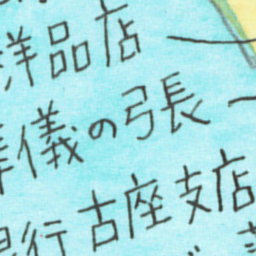 洋品店
儀の弓長
銀行古座支店